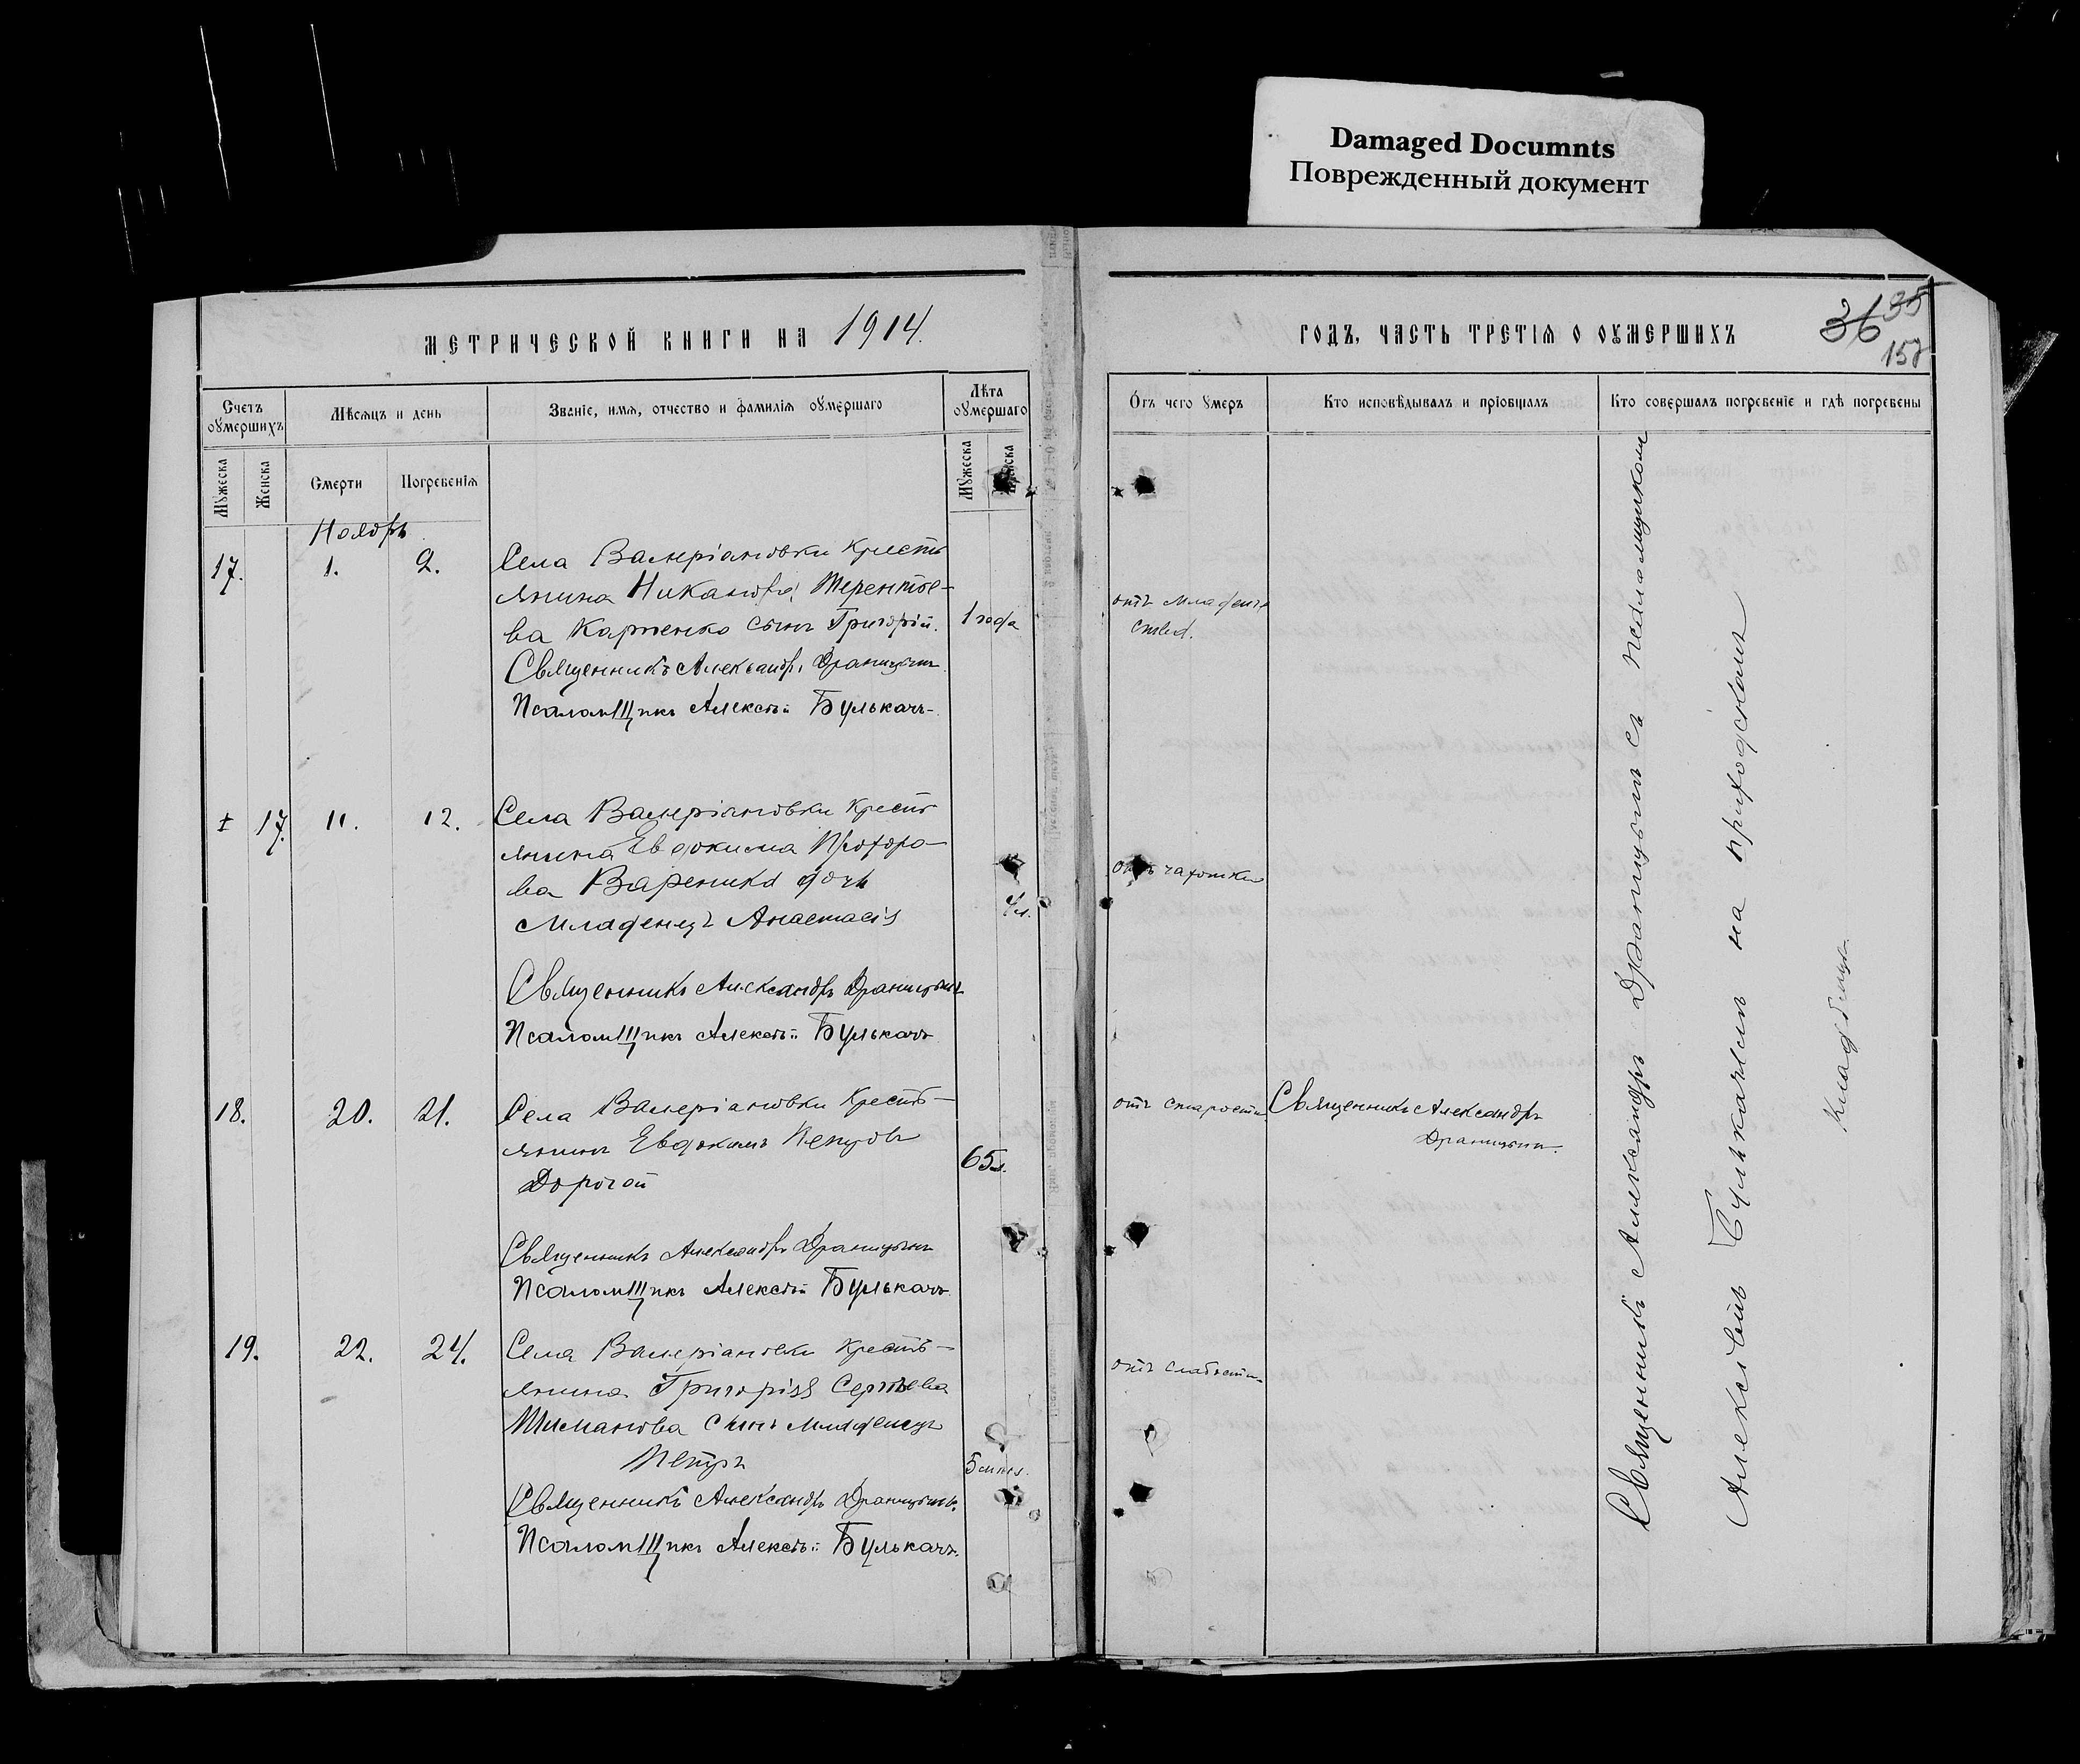 Damaged Documnts
Поврежденный документ
МЕТРИЧЕСКОЙ КНИГИ НА 1914.
ГОДЪ, ЧАСТЬ ТРЕТІЯ О ОУМЕРШИХЪ
36 35
157
Счетъ оумершихъ
Мѣсяцъ и день
Званіе, имя, отчество и фамилія оумершаго
Лѣта оумершаго
Мужеска
Женска
Смерти
Погребенія
Мужеска
Женска
Отъ чего умеръ
Кто исповѣдывалъ и пріобщалъ
Кто совершалъ погребеніе и гдѣ погребены
Ноябрь
17. 1. 2.
Села Валеріановки кресть
янина Никанора Терентье-
ва Карпенко сынъ Григорій.
1 года
отъ младенче
ства.
Священникъ Александръ Драницынъ
Псаломщикъ Алексѣй Булькачъ
17. 11. 12.
Села Валеріановки кресть
янина Евдокима Прохоро-
ва Вареника дочь
младенецъ Анастасія
4 л.
отъ чахотки
Священникъ Александръ Драницынъ
Псаломщикъ Алексѣй Булькачъ
18. 20. 21.
Села Валеріановки кресть-
янинъ Евдокимъ
Дорогой
65 л.
отъ старости
Священникъ Александръ
Драницынъ.
Священникъ Александръ Драницынъ
Псаломщикъ Алексѣй Булькачъ
19. 22. 24.
Села Валеріановки кресть-
янина Григорія Сергѣева
Шиманова сынъ младенецъ
Петръ
5 мѣс.
отъ слабости
Священникъ Александръ Драницынъ.
Псаломщикъ Алексѣй Булькачъ.
Священникъ Александръ Драницынъ съ псаломщикомъ
Алексѣемъ Булькачемъ на приходскомъ
кладбищѣ